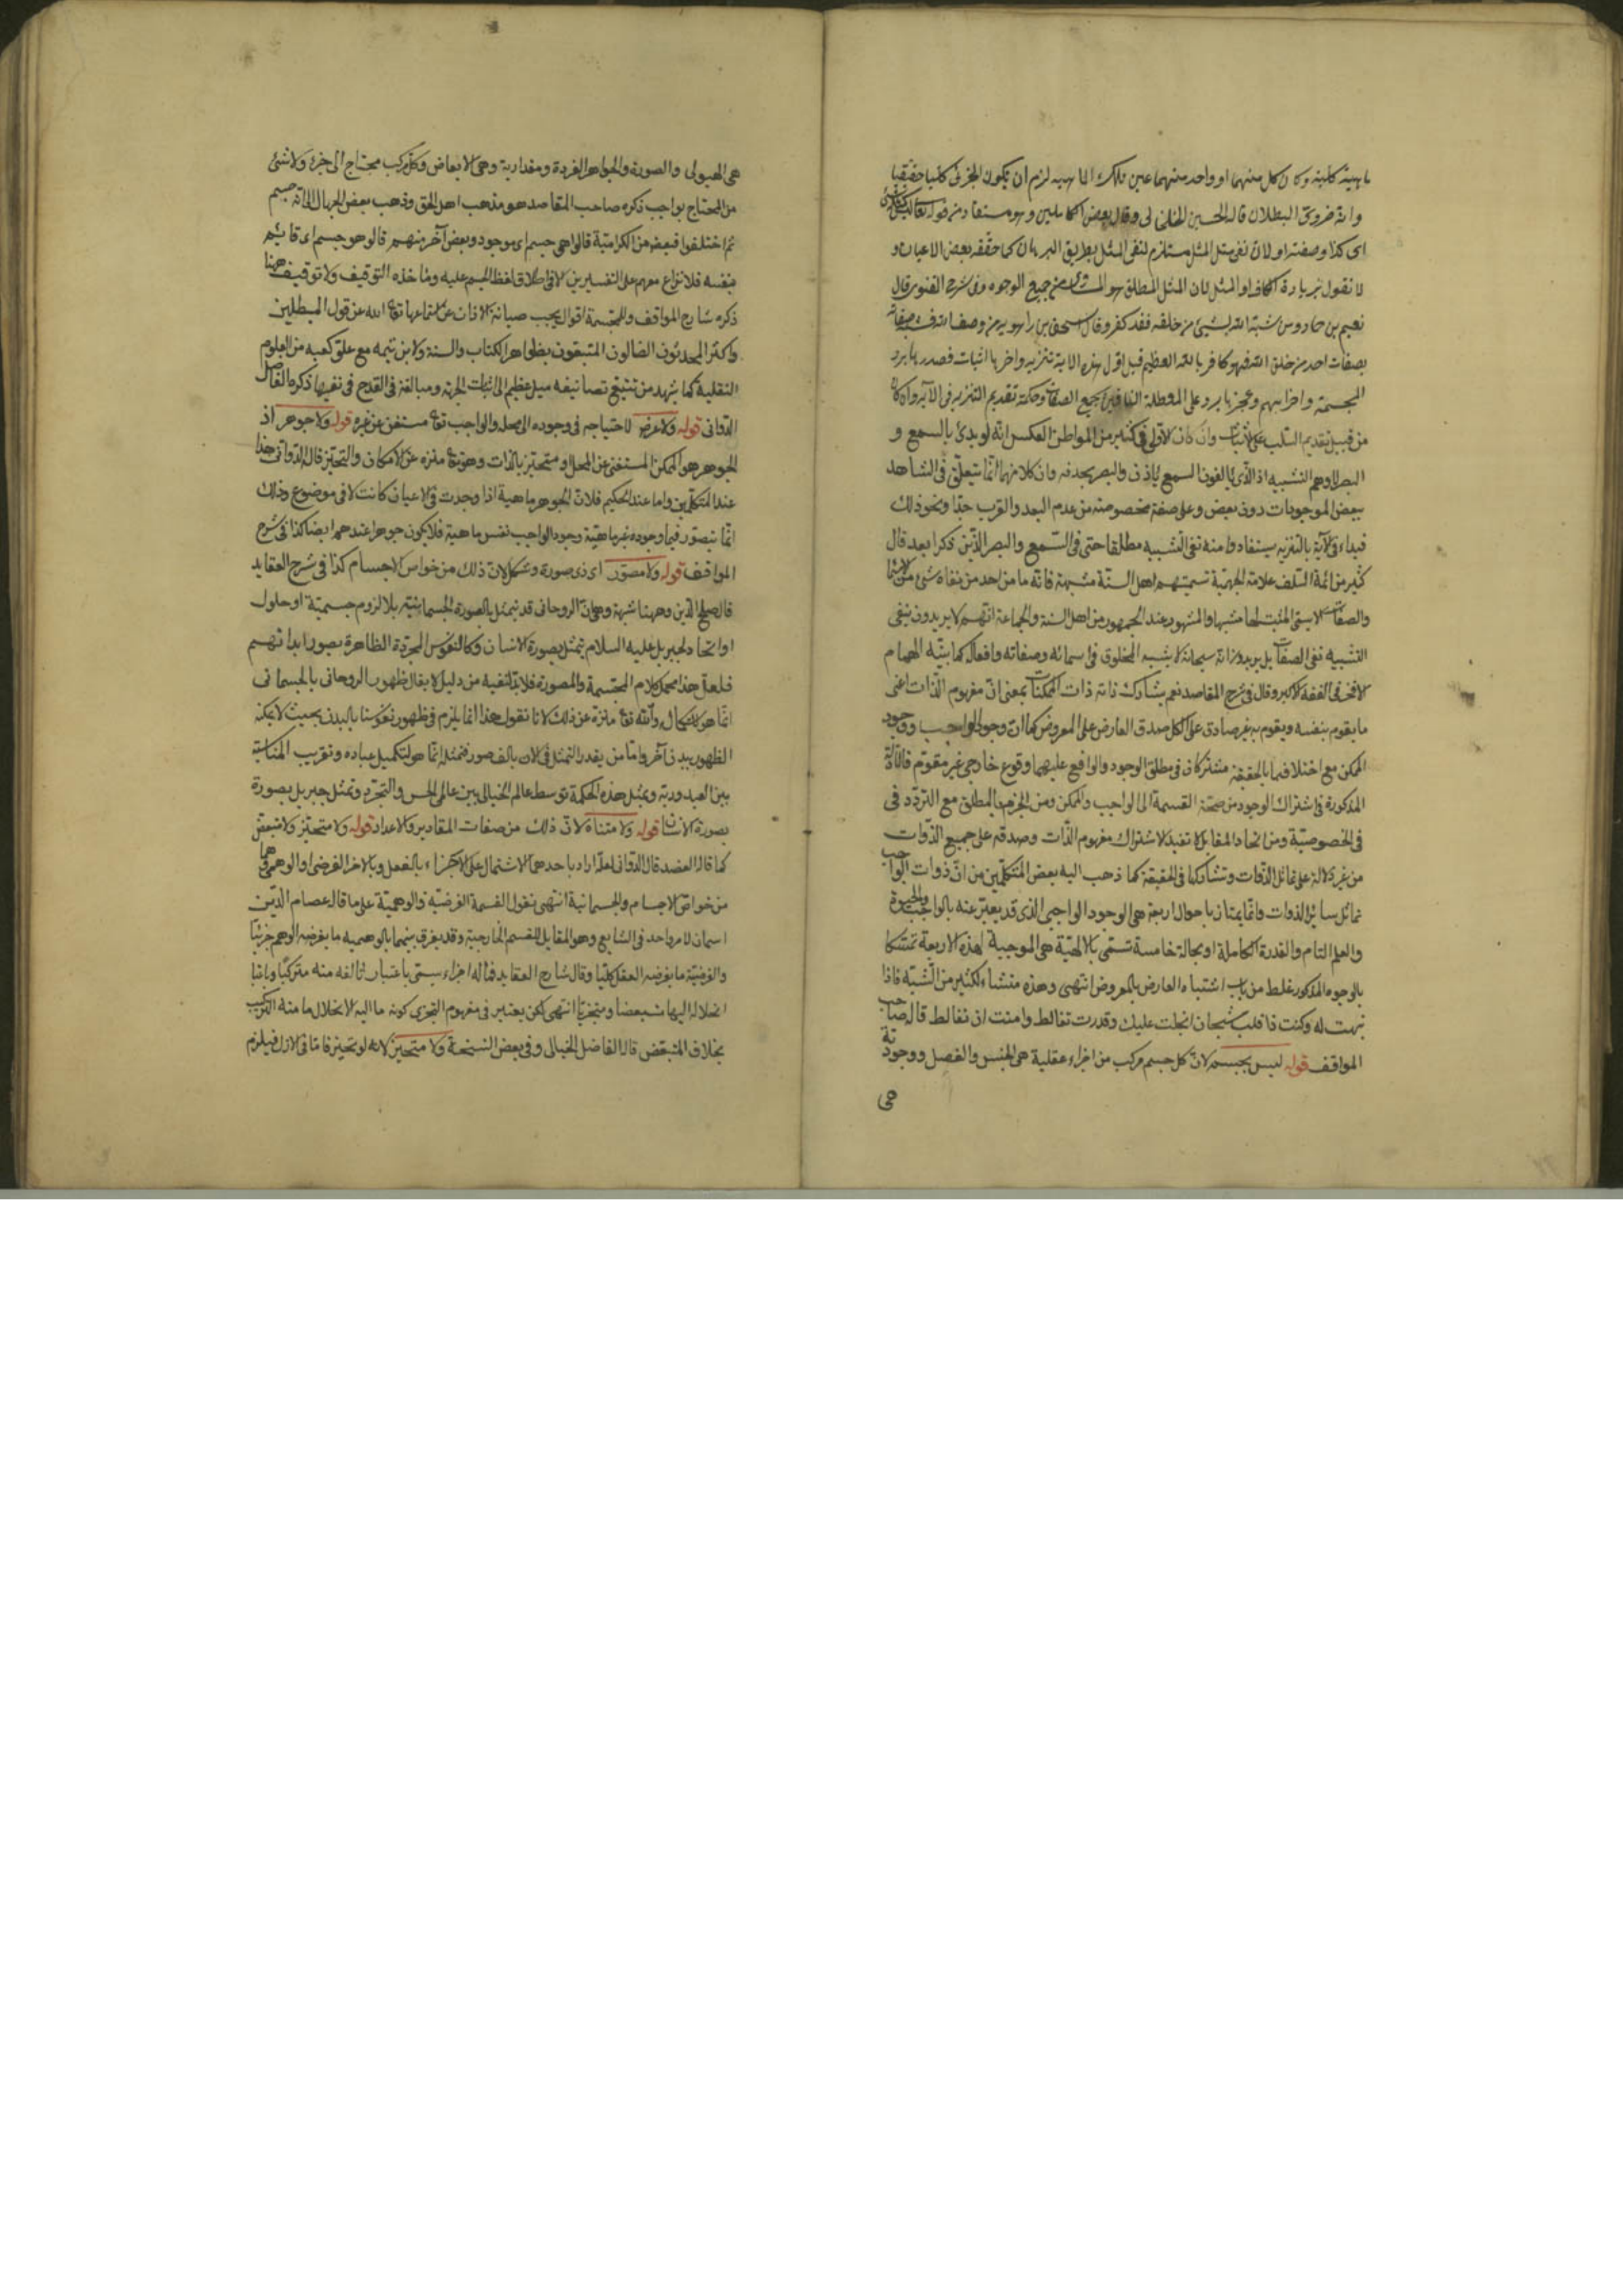 ماهية كلية وكان كل منهما او واحد منهما عين تلك الماهية لزم ان يكون الجزئى كليا حقيقيا
وانه ضرورى البطلان قاله الحسين الخلخالى وقال بعض الكاملين وهو مستفاد من قوله تعالى ليس كمثله شئ
اى كذاته وصفته او لان نفى مثل المثل مستلزم لنفى المثل بطريق البرهان كما حققه بعض الاعيان و
لا نقول بزيادة الكاف او المثل لان المثل المطلق هو المساوى من جميع الوجوه وفى شرح القنوى قال
نعيم بن حماد من شبه الله بشئ من خلقه فقد كفر وقال اسحق بن راهويه من وصف الله فشبه صفاته
بصفات احد من خلق الله فهو كافر بالله العظيم قيل اول هذه الاية تنزيه واخرها اثبات فصدرها يرد
المجسمة واضرابهم وعجزها يرد على المعطلة النافين لجميع الصفات وحكمة تقديم التنزيه فى الآية وان كان
من قبيل تقديم السلب على الاثبات وان كان الاولى فى كثير من المواطن العكس انه لو بدئ بالسمع و
البصر لاوهم التشبيه اذ الذى يألفون السمع باذن والبصر بحدقة وان كلا منهما انما يتعلق فى الشاهد
ببعض الموجودات دون بعض وعلى صفة مخصوصة من عدم البعد والقرب جدا ونحو ذلك
فبداء فى الآية بالتنزيه ليستفادوا منه نفى التشبيه مطلقا حتى فى السمع والبصر الذين ذكرا بعد قال
كثير من ائمة السلف علامة الجهمية تسميتهم اهل السنة مشبهة فانه ما من احد من نفاة شئ من الاسماء
والصفات الا يسمى المثبت لها مشبها والمشهور عند الجمهور من اهل السنة والجماعة انهم لا يريدون بنفى
التشبيه نفى الصفات بل يريدون انه سبحانه لا يشبه المخلوق فى اسمائه وصفاته وافعاله كما بينه الهمام
الافخم فى الفقه الاكبر وقال فى شرح المقاصد نعم يشارك ذاته ذات الممكنات بمعنى ان مفهوم الذات اعنى
ما يقوم بنفسه ويقوم به غيره صادق على الكل صدق العارض على المعروض كما ان وجود الواجب ووجود
الممكن مع اختلافهما بالحقيقة مشتركان فى مطلق الوجود والواقع عليهما وقوع خارجى غير مقوم فالادلة
المذكورة فى اشتراك الوجود من صحة القسمة الى الواجب والممكن ومن الجزم بالمطلق مع التردد فى
فى الخصوصية ومن اتحاد المقابل لا تفيد الا اشتراك مفهوم الذات وصدقه على جميع الذوات
من غير دلالة على تماثل الذوات وتشاركها فى الحقيقة كما ذهب اليه بعض المتكلمين من ان ذوات الواجب
تماثل سائر الذوات وانما يمتاز باحوال اربعة هى الوجود الواجبى الذى قد يعبر عنه بالواجب والحيوة
والعلم التام والقدرة الكاملة او بحالة خامسة تسمى بالالهية هى الموجبة لهذه الاربعة تمسكا
بالوجوه المذكور غلط من باب اشتباه العارض بالمعروض انتهى وهذه منشاء لكثير من الشبه فاذا
نبهت له وكنت ذا قلب شيحان انجلت عليك وقدرت تغالط وامنت ان تغالط قاله صاحب
المواقف قوله ليس بجسم لان كل جسم مركب من اجزاء عقلية هى الجنس والفصل ووجودية
هى
هى الهيولى والصورة والجواهر الفردة ومقدارية وهى الابعاض وكل مركب محتاج الى جزئه ولا شئ
من المحتاج بواجب ذكره صاحب المقاصد هو مذهب اهل الحق وذهب بعض الجهال الى انه جسم
ثم اختلفوا فبعض من الكرامية قالوا هو جسم اى موجود وبعض آخر منهم قالو هو جسم اى قائم
بنفسه فلا نزاع معهم على التفسيرين الا فى اطلاق لفظ الجسم عليه ومأخذه التوقيف ولا توقيف ههنا
ذكره شارح المواقف وللمجسمة اقوال يجب صيانة الاذان عن استماعها تعالى الله عن قول المبطلين
واكثر المحدثون الضالون المتبعون بظواهر الكتاب والسنة ولابن تيمه مع علو كعبه من العلوم
النقلية كما يشهد من تتبع تصانيفه ميل عظيم الى اثبات الجهة ومبالغة فى القدح فى نفيها ذكره الفاضل
الدوانى قوله ولا عرض لاحتياجه فى وجوده الى محله والواجب تعالى مستغن عن غيره قوله ولا جوهر اذ
الجوهر هو الممكن المستغنى عن المحل او متحيز بالذات وهو تعالى منزه عن الامكان والتحيز قال الدوانى هذا
عند المتكلمين واما عند الحكيم فلان الجوهر ماهية اذا وجدت فى الاعيان كانت لا فى موضوع وذلك
انما يتصور فيما وجوده غير ماهيته ووجود الواجب نفس ماهيته فلا يكون جوهرا عندهم ايضا كذا فى شرح
المواقف قوله ولا مصور اى ذى صورة وشكل لان ذلك من خواص الاجسام كذا فى شرح العقايد
قال صلاح الدين وههنا شبهة وهى ان الروحانى قد يتمثل بالصورة الجسمانية بلا لزوم جسمية او حلول
او اتحاد لجبريل عليه السلام يتمثل بصورة الانسان وكالنفوس المجردة الظاهرة بصور ابدانهم
فلعل هذا محمل كلام المجسمة والمصورة فلا بد لنفيه من دليل لا يقال ظهور الروحانى بالجسمانى
انما هو للاستكمال والله تعالى منزه عن ذلك لانا نقول هذا انما يلزم فى ظهور نفوسنا بالبدن بحيث لا يمكنه
الظهور ببدن آخر واما من يقدر التمثل فى الآن بالف صور فتمثله انما هو لتكميل عباده وتقريب المناسبة
بين العبد وربه وبمثل هذه الحكمة توسط عالم الخيال بين عالمى الحس والتجرد وتمثل جبريل بصورة
بصورة الانسان قوله ولا متناه لان ذلك من صفات المقادير والاعداد قوله ولا متحيز ولا متبعض
كما قاله العضد قال الدوانى لعله اراد باحدهما الاشتمال على الاجزاء بالفعل وبالاخر الفرضى او الوهمى وهما
من خواص الاجسام والجسمانية انتهى نقول القسمة الفرضية والوهمية على ما قاله عصام الدين
اسمان لامر واحد فى الشايع وهو المقابل للقسم الخارجية وقد يفرق بينهما بالوهميه ما يفرضه الوهم جزئيا
والفرضية ما يفرضه العقل كليا وقال شارح العقايد فماله اجزاء يسمى باعتبار تالفه منه متركبا وباعتبار
انحلاله اليها متبعضا ومتجزيا انتهى لكن يعتبر فى مفهوم التجزى كونه ما اليه الانحلال ما منه التركيب
بخلاف المتبعض قاله الفاضل الخيالى وفى بعض النسخة ولا متحيز لانه لو تحيز فاما فى الازل فيلزم